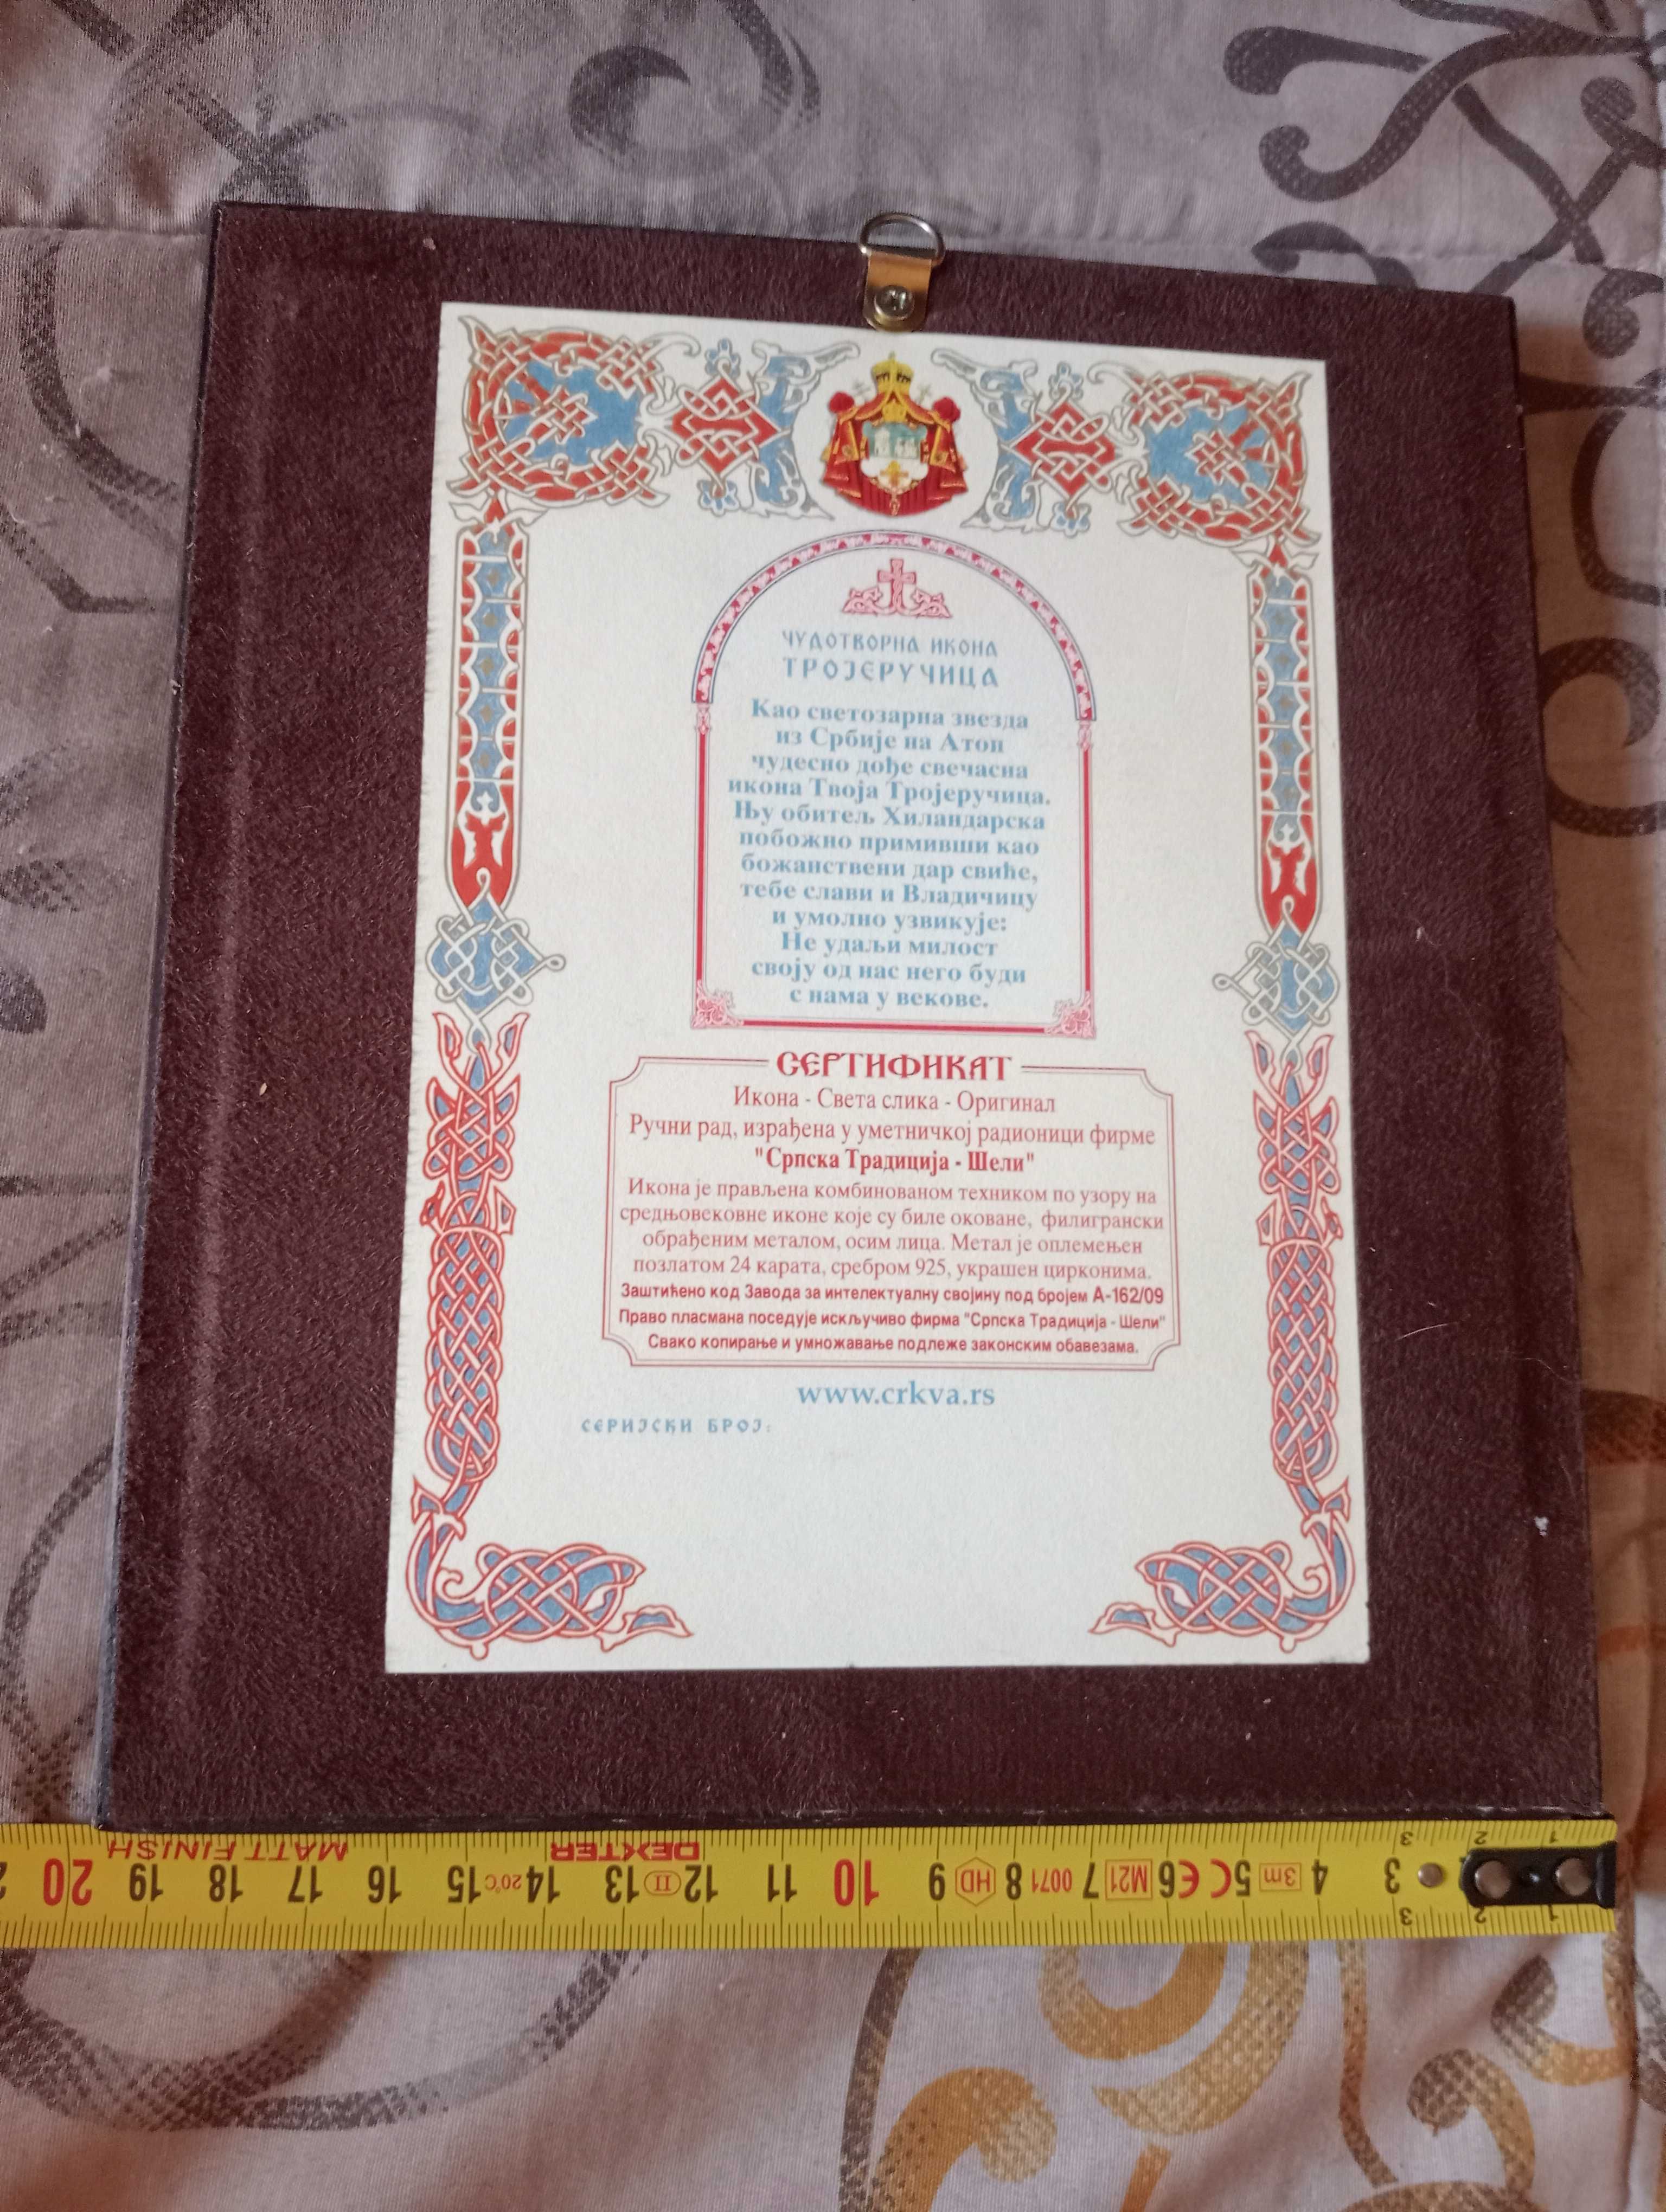 ЧУДОТВОРНА ИКОНА
ТРОЈЕРУЧИЦА
Као светозарна звезда
из Србије на Атон
чудесно дође свечасна
икона Твоја Тројеручица.
Њу обитељ Хиландарска
побожно примивши као
божанствени дар свиће,
тебе слави и Владичицу
и умолно узвикује:
Не удаљи милост
своју од нас него буди
с нама у векове.
СЕРТИФИКАТ
Икона - Света слика - Оригинал
Ручни рад, израђена у уметничкој радионици фирме
"Српска Традиција - Шели"
Икона је прављена комбинованом техником по узору на
средњовековне иконе које су биле оковане, филигрански
обрађеним металом, осим лица. Метал је оплемењен
позлатом 24 карата, сребром 925, украшен цирконима.
Заштићено код Завода за интелектуалну својину под бројем А-162/09
Право пласмана поседује искључиво фирма "Српска Традиција - Шели"
Свако копирање и умножавање подлеже законским обавезама.
www.crkva.rs
СЕРИЈСКИ БРОЈ:
1 2 3
3 4 3m 5 CE 6 M21 7 0071 8 HD 9 10 11 12 II 13 14 20°C 15 16 17 18 19 20
DEXTER MATT FINISH
1 2 3